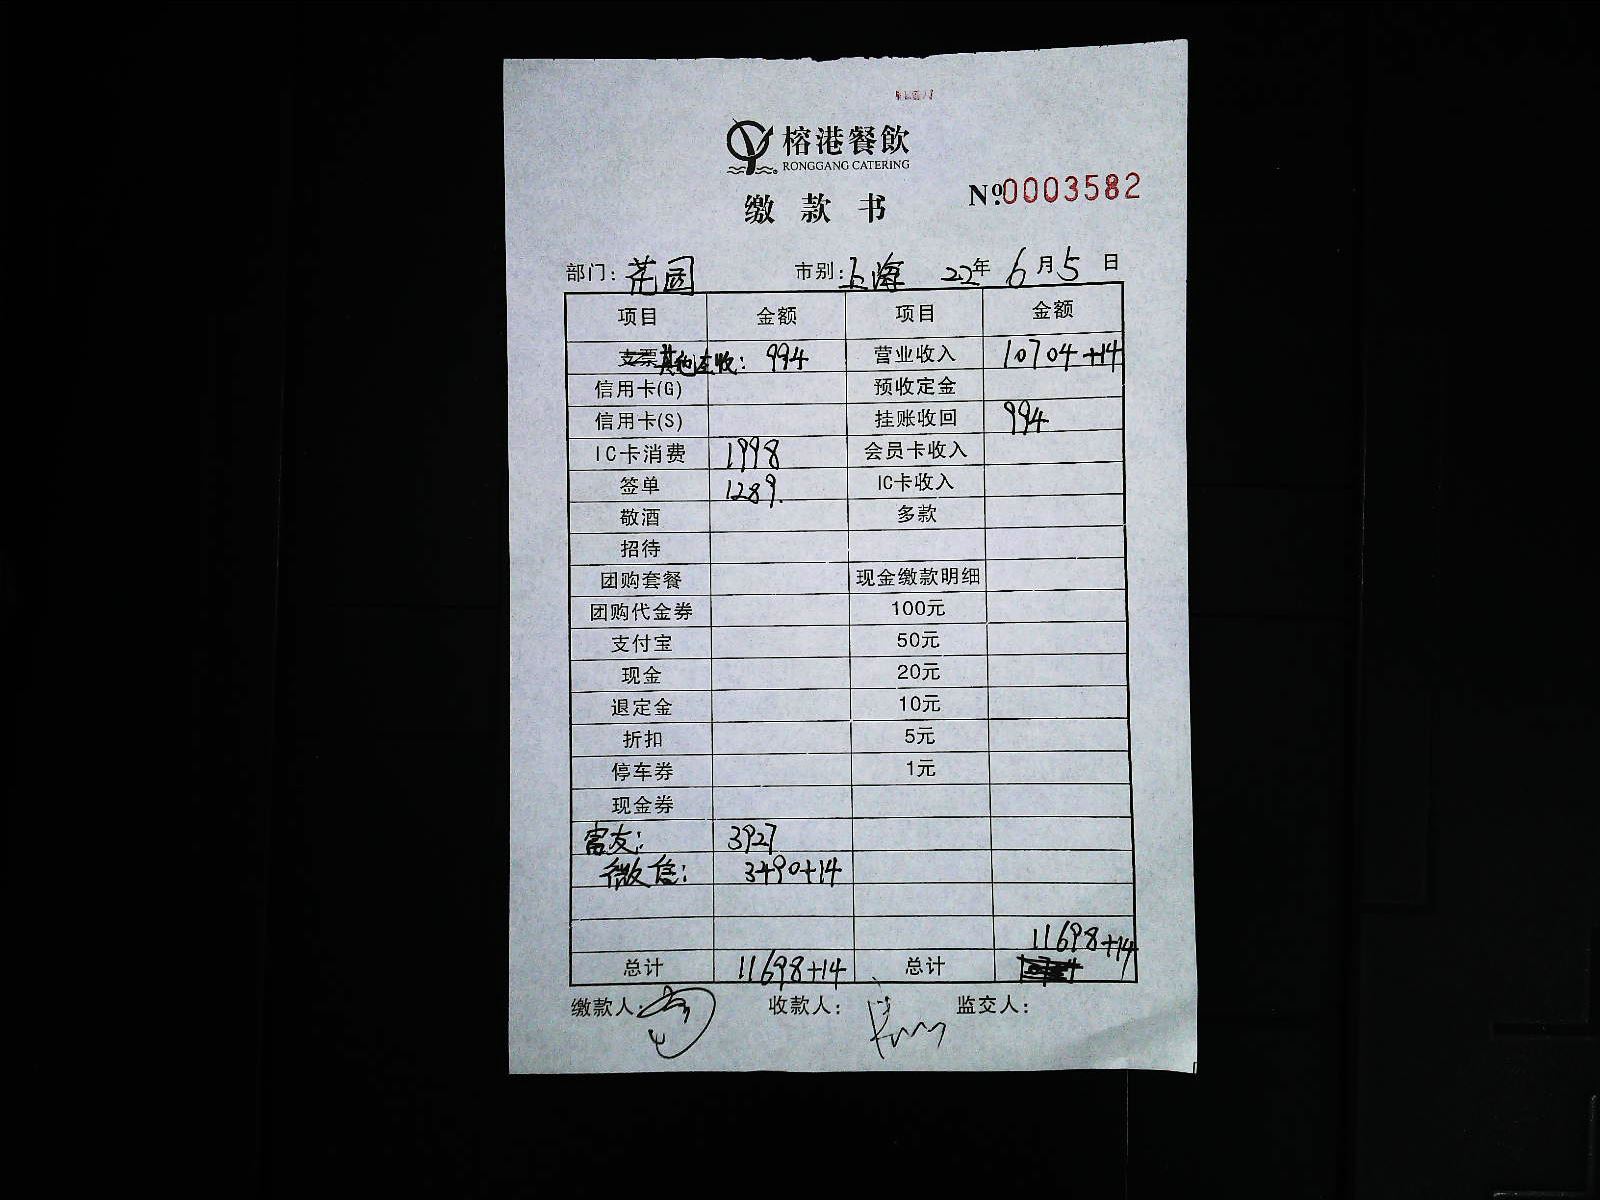 榕港餐飲
RONGGANG CATERING
№.0003582
缴款书
部门: 花园 市别: 上海 22年 6月5日
项目 金额 项目 金额
支票 其他应收: 994 营业收入 10704+14
信用卡(G) 预收定金
信用卡(S) 挂账收回 994
IC卡消费 1998 会员卡收入
签单 1289. IC卡收入
敬酒 多款
招待
团购套餐 现金缴款明细
团购代金券 100元
支付宝 50元
现金 20元
退定金 10元
折扣 5元
停车券 1元
现金券
富友: 3927
微信: 3490+14
11698+14
总计 11698+14 总计
缴款人: 收款人: 监交人: